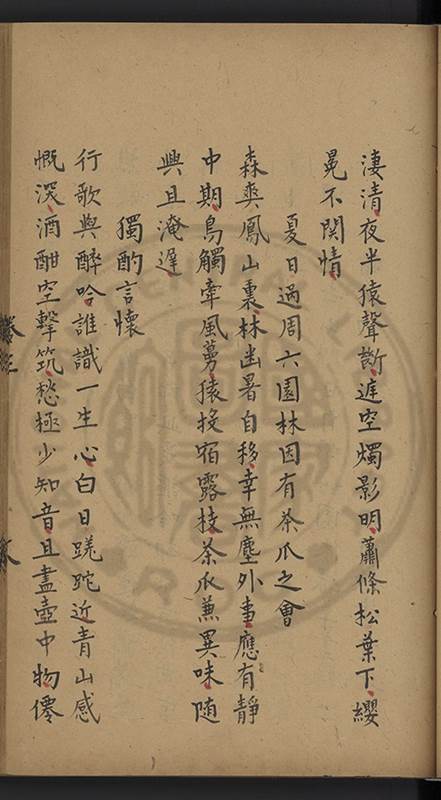 淒清夜半猿聲斷遥空燭影明蕭條松葉下纓
冕不関情
夏日過周六園林因有茶瓜之會
森爽鳳山裏林幽暑自移幸無塵外事應有靜
中期鳥觸牽風蔓猿投宿露枝茶瓜兼異味随
興且淹遲
獨酌言懷
行歌與醉吟誰識一生心白日蹉跎近青山感
慨深酒酣空擊筑愁極少知音且盡壺中物僊